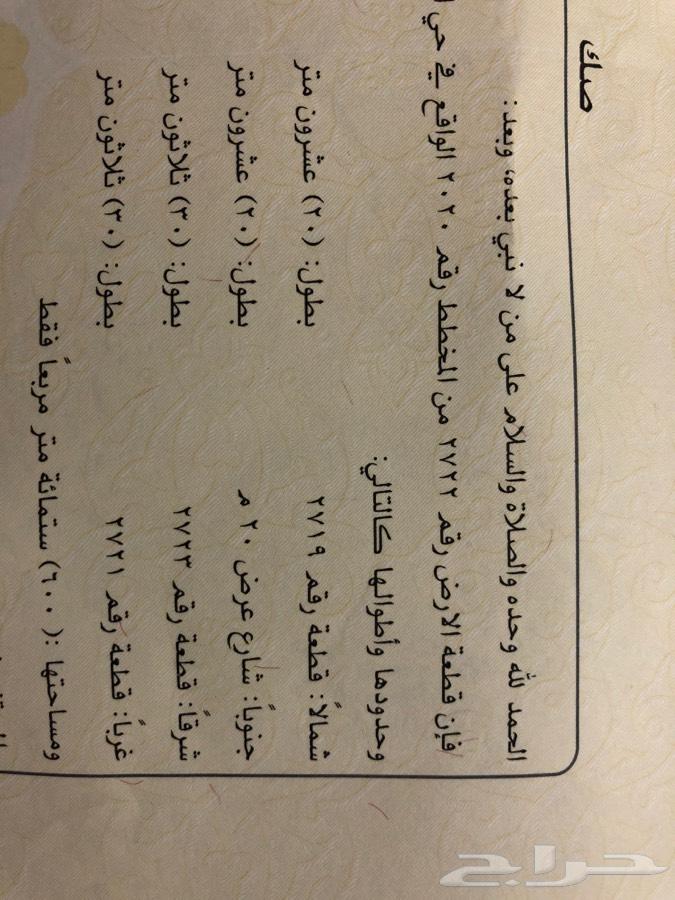 صك
الحمد لله وحده والصلاة والسلام على من لا نبي بعده، وبعد:
فإن قطعة الارض رقم ٢٧٢٢ من المخطط رقم ٢٠٢٠ الواقع في حي
وحدودها وأطوالها كالتالي:
شمالاً: قطعة رقم ٢٧١٩ بطول: (٢٠) عشرون متر
جنوباً: شارع عرض ٢٠ م بطول: (٢٠) عشرون متر
شرقاً: قطعة رقم ٢٧٢٣ بطول: (٣٠) ثلاثون متر
غرباً: قطعة رقم ٢٧٢١ بطول: (٣٠) ثلاثون متر
ومساحتها :( ٦٠٠) ستمائة متر مربعاً فقط
حراج